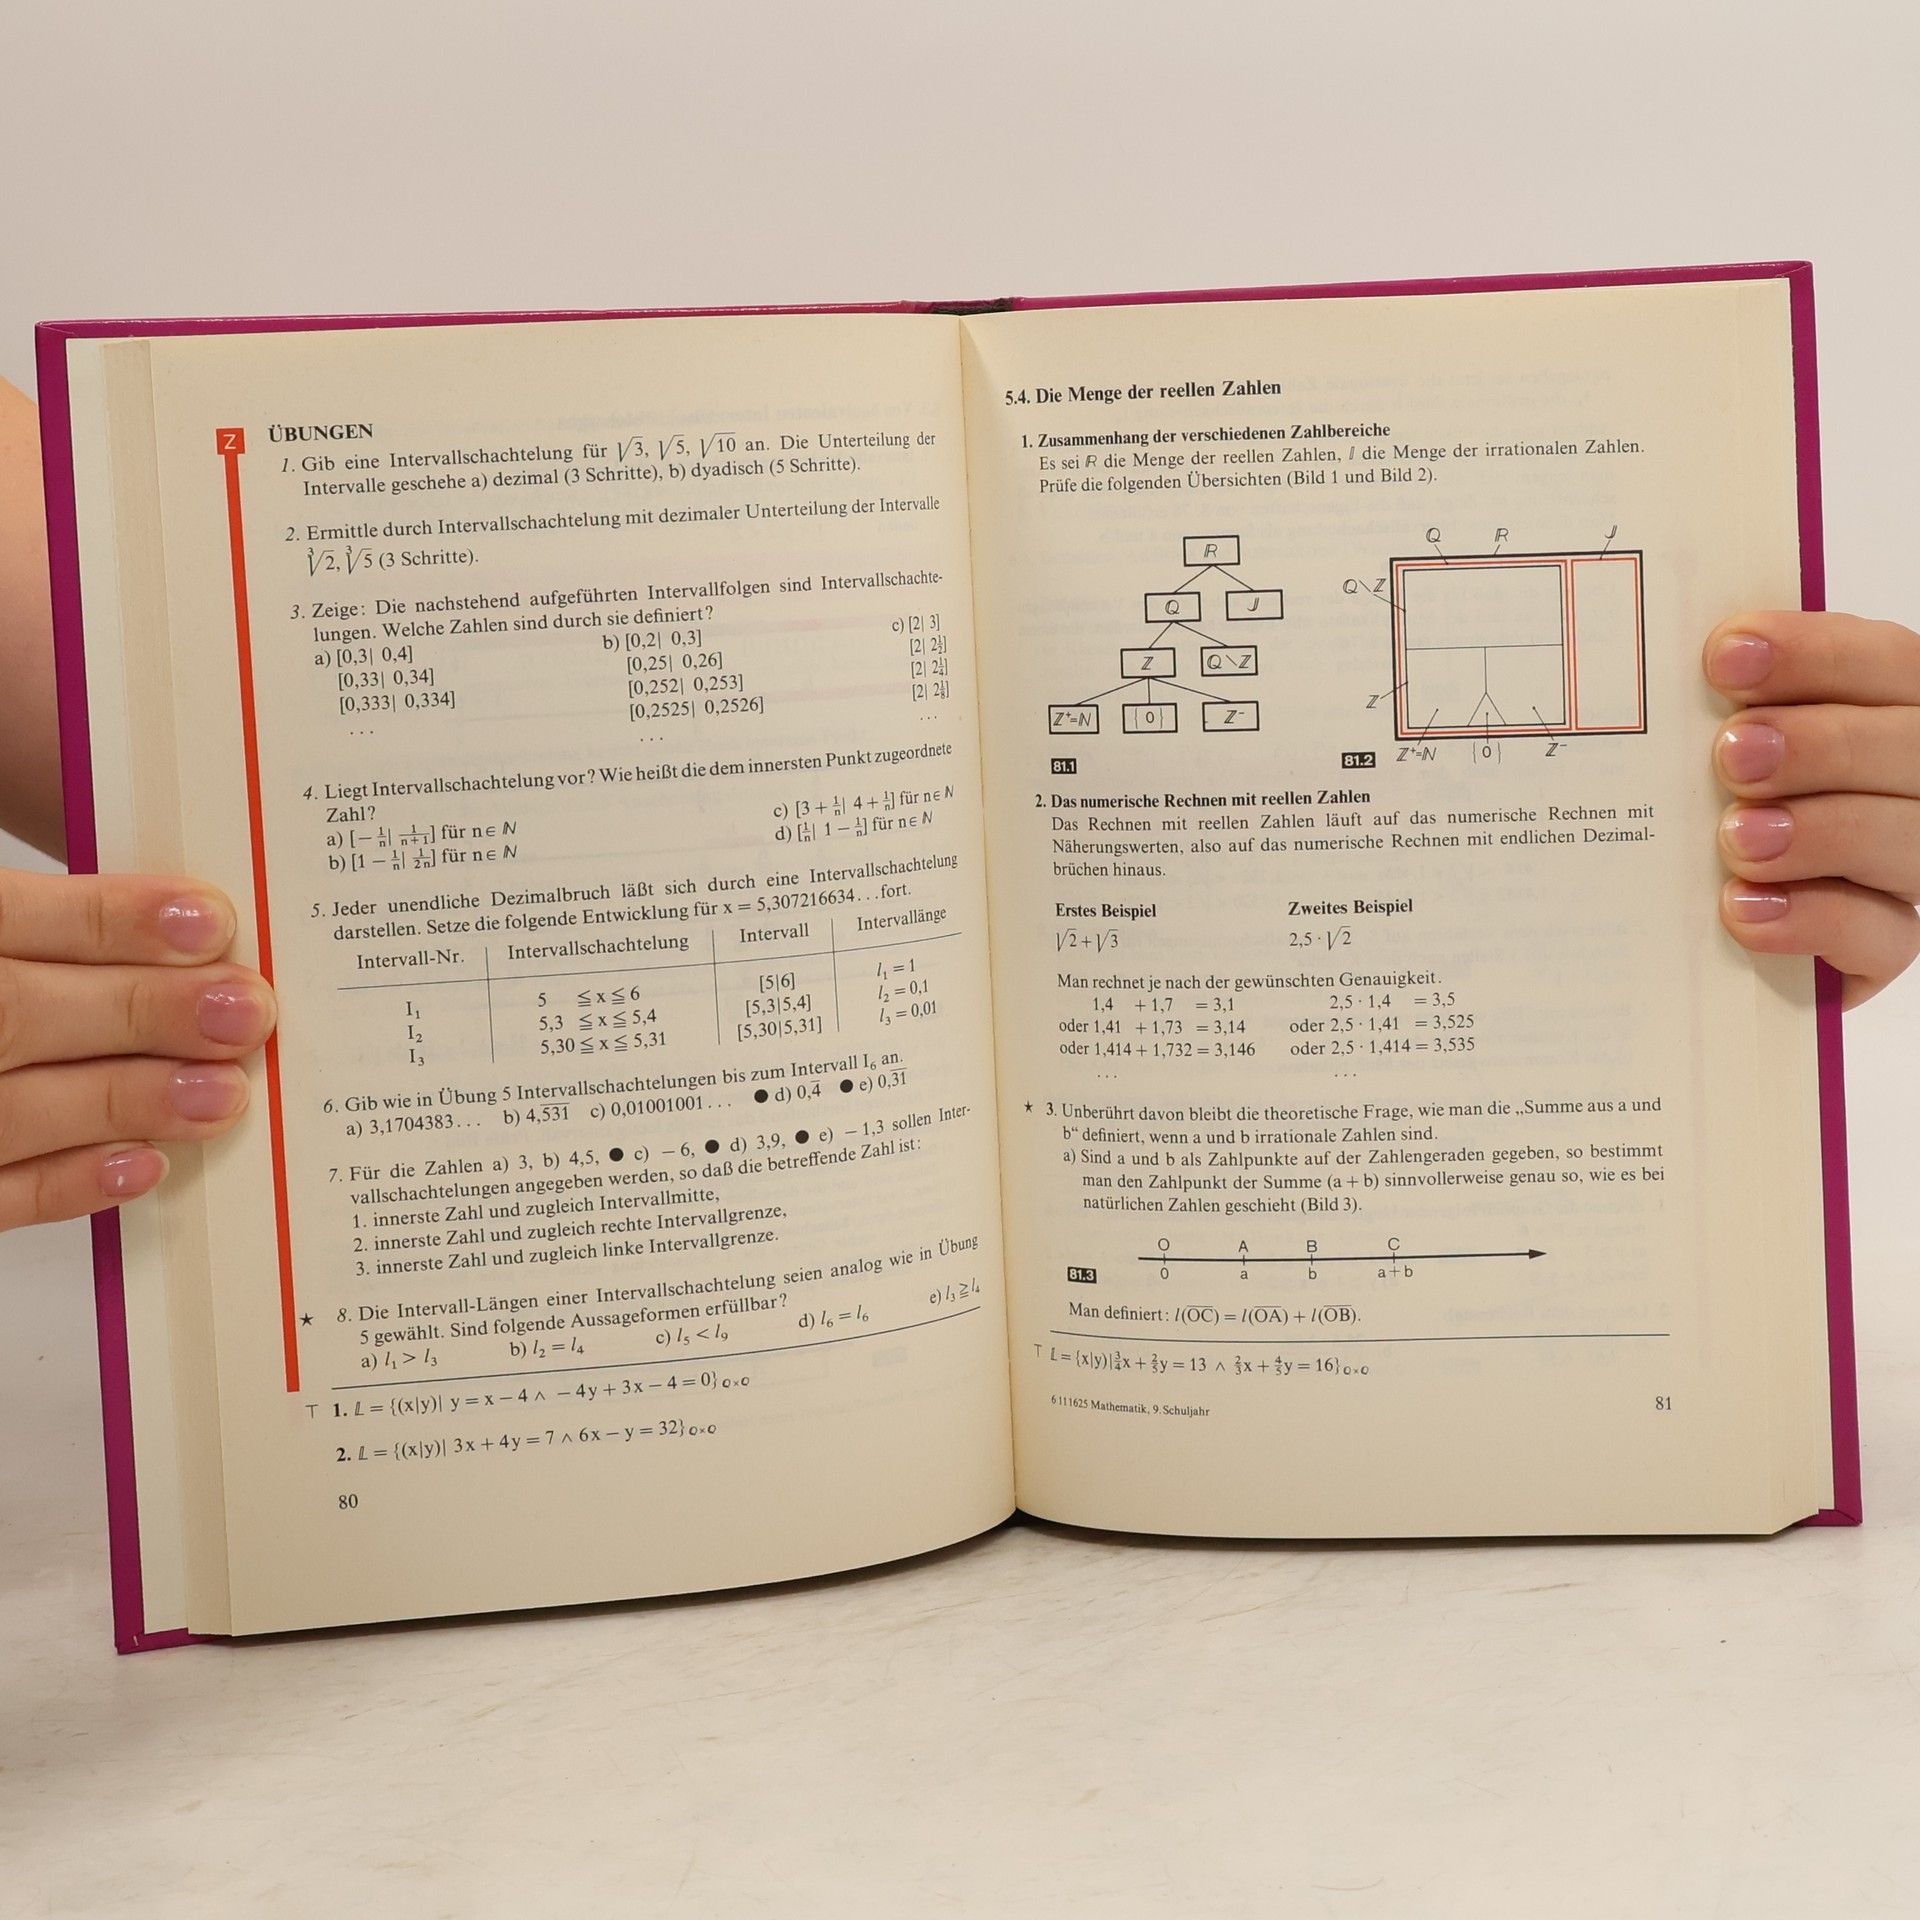 Z
ÜBUNGEN
1. Gib eine Intervallschachtelung für √3, √5, √10 an. Die Unterteilung der
Intervalle geschehe a) dezimal (3 Schritte), b) dyadisch (5 Schritte).
2. Ermittle durch Intervallschachtelung mit dezimaler Unterteilung der Intervalle
∛2, ∛5 (3 Schritte).
3. Zeige: Die nachstehend aufgeführten Intervallfolgen sind Intervallschachte-
lungen. Welche Zahlen sind durch sie definiert?
a) [0,3| 0,4] b) [0,2| 0,3] c) [2| 3]
[0,33| 0,34] [0,25| 0,26] [2| 2½]
[0,333| 0,334] [0,252| 0,253] [2| 2¼]
... [0,2525| 0,2526] [2| 2⅛]
... ...
4. Liegt Intervallschachtelung vor? Wie heißt die dem innersten Punkt zugeordnete
Zahl?
a) [− 1/n| 1/(n+1)] für n ∈ ℕ c) [3 + 1/n| 4 + 1/n] für n ∈ ℕ
b) [1 − 1/n| 1/2n] für n ∈ ℕ d) [1/n| 1 − 1/n] für n ∈ ℕ
5. Jeder unendliche Dezimalbruch läßt sich durch eine Intervallschachtelung
darstellen. Setze die folgende Entwicklung für x = 5,307216634...fort.
Intervall-Nr. Intervallschachtelung Intervall Intervallänge
I₁ 5 ≦ x ≦ 6 [5|6] l₁ = 1
I₂ 5,3 ≦ x ≦ 5,4 [5,3|5,4] l₂ = 0,1
I₃ 5,30 ≦ x ≦ 5,31 [5,30|5,31] l₃ = 0,01
6. Gib wie in Übung 5 Intervallschachtelungen bis zum Intervall I₆ an.
a) 3,1704383... b) 4,5̅3̅1̅ c) 0,01001001... ● d) 0,4̅ ● e) 0,3̅1̅
7. Für die Zahlen a) 3, b) 4,5, ● c) − 6, ● d) 3,9, ● e) − 1,3 sollen Inter-
vallschachtelungen angegeben werden, so daß die betreffende Zahl ist:
1. innerste Zahl und zugleich Intervallmitte,
2. innerste Zahl und zugleich rechte Intervallgrenze,
3. innerste Zahl und zugleich linke Intervallgrenze.
★ 8. Die Intervall-Längen einer Intervallschachtelung seien analog wie in Übung
5 gewählt. Sind folgende Aussageformen erfüllbar?
a) l₁ > l₃ b) l₂ = l₄ c) l₅ < l₉ d) l₆ = l₆ e) l₃ ≧ l₄
T 1. 𝕃 = {(x|y)| y = x − 4 ∧ − 4y + 3x − 4 = 0} ℚ×ℚ
2. 𝕃 = {(x|y)| 3x + 4y = 7 ∧ 6x − y = 32} ℚ×ℚ
80
5.4. Die Menge der reellen Zahlen
1. Zusammenhang der verschiedenen Zahlbereiche
Es sei ℝ die Menge der reellen Zahlen, 𝕀 die Menge der irrationalen Zahlen.
Prüfe die folgenden Übersichten (Bild 1 und Bild 2).
ℝ
ℚ 𝕁
ℤ ℚ∖ℤ
ℤ⁺=ℕ {0} ℤ⁻
81.1
ℚ ℝ 𝕁
ℚ∖ℤ
ℤ
ℤ⁺=ℕ {0} ℤ⁻
81.2
2. Das numerische Rechnen mit reellen Zahlen
Das Rechnen mit reellen Zahlen läuft auf das numerische Rechnen mit
Näherungswerten, also auf das numerische Rechnen mit endlichen Dezimal-
brüchen hinaus.
Erstes Beispiel Zweites Beispiel
√2 + √3 2,5 · √2
Man rechnet je nach der gewünschten Genauigkeit.
1,4 + 1,7 = 3,1 2,5 · 1,4 = 3,5
oder 1,41 + 1,73 = 3,14 oder 2,5 · 1,41 = 3,525
oder 1,414 + 1,732 = 3,146 oder 2,5 · 1,414 = 3,535
... ...
★ 3. Unberührt davon bleibt die theoretische Frage, wie man die „Summe aus a und
b“ definiert, wenn a und b irrationale Zahlen sind.
a) Sind a und b als Zahlpunkte auf der Zahlengeraden gegeben, so bestimmt
man den Zahlpunkt der Summe (a + b) sinnvollerweise genau so, wie es bei
natürlichen Zahlen geschieht (Bild 3).
O A B C
0 a b a+b
81.3
Man definiert: l(O̅C̅) = l(O̅A̅) + l(O̅B̅).
T 𝕃 = {x|y)|¾x + ⅖y = 13 ∧ ⅔x + ⅘y = 16} ℚ×ℚ
6 111625 Mathematik, 9. Schuljahr
81